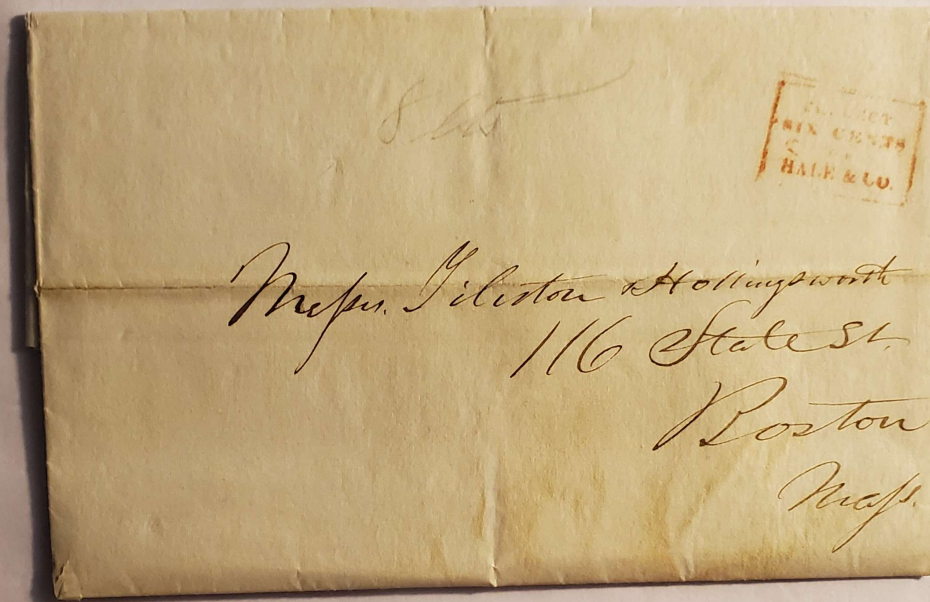 8 cts
COLLECT
SIX CENTS
HALE & CO.
Messrs. Tileston & Hollingsworth
116 State St.
Boston
Mass.